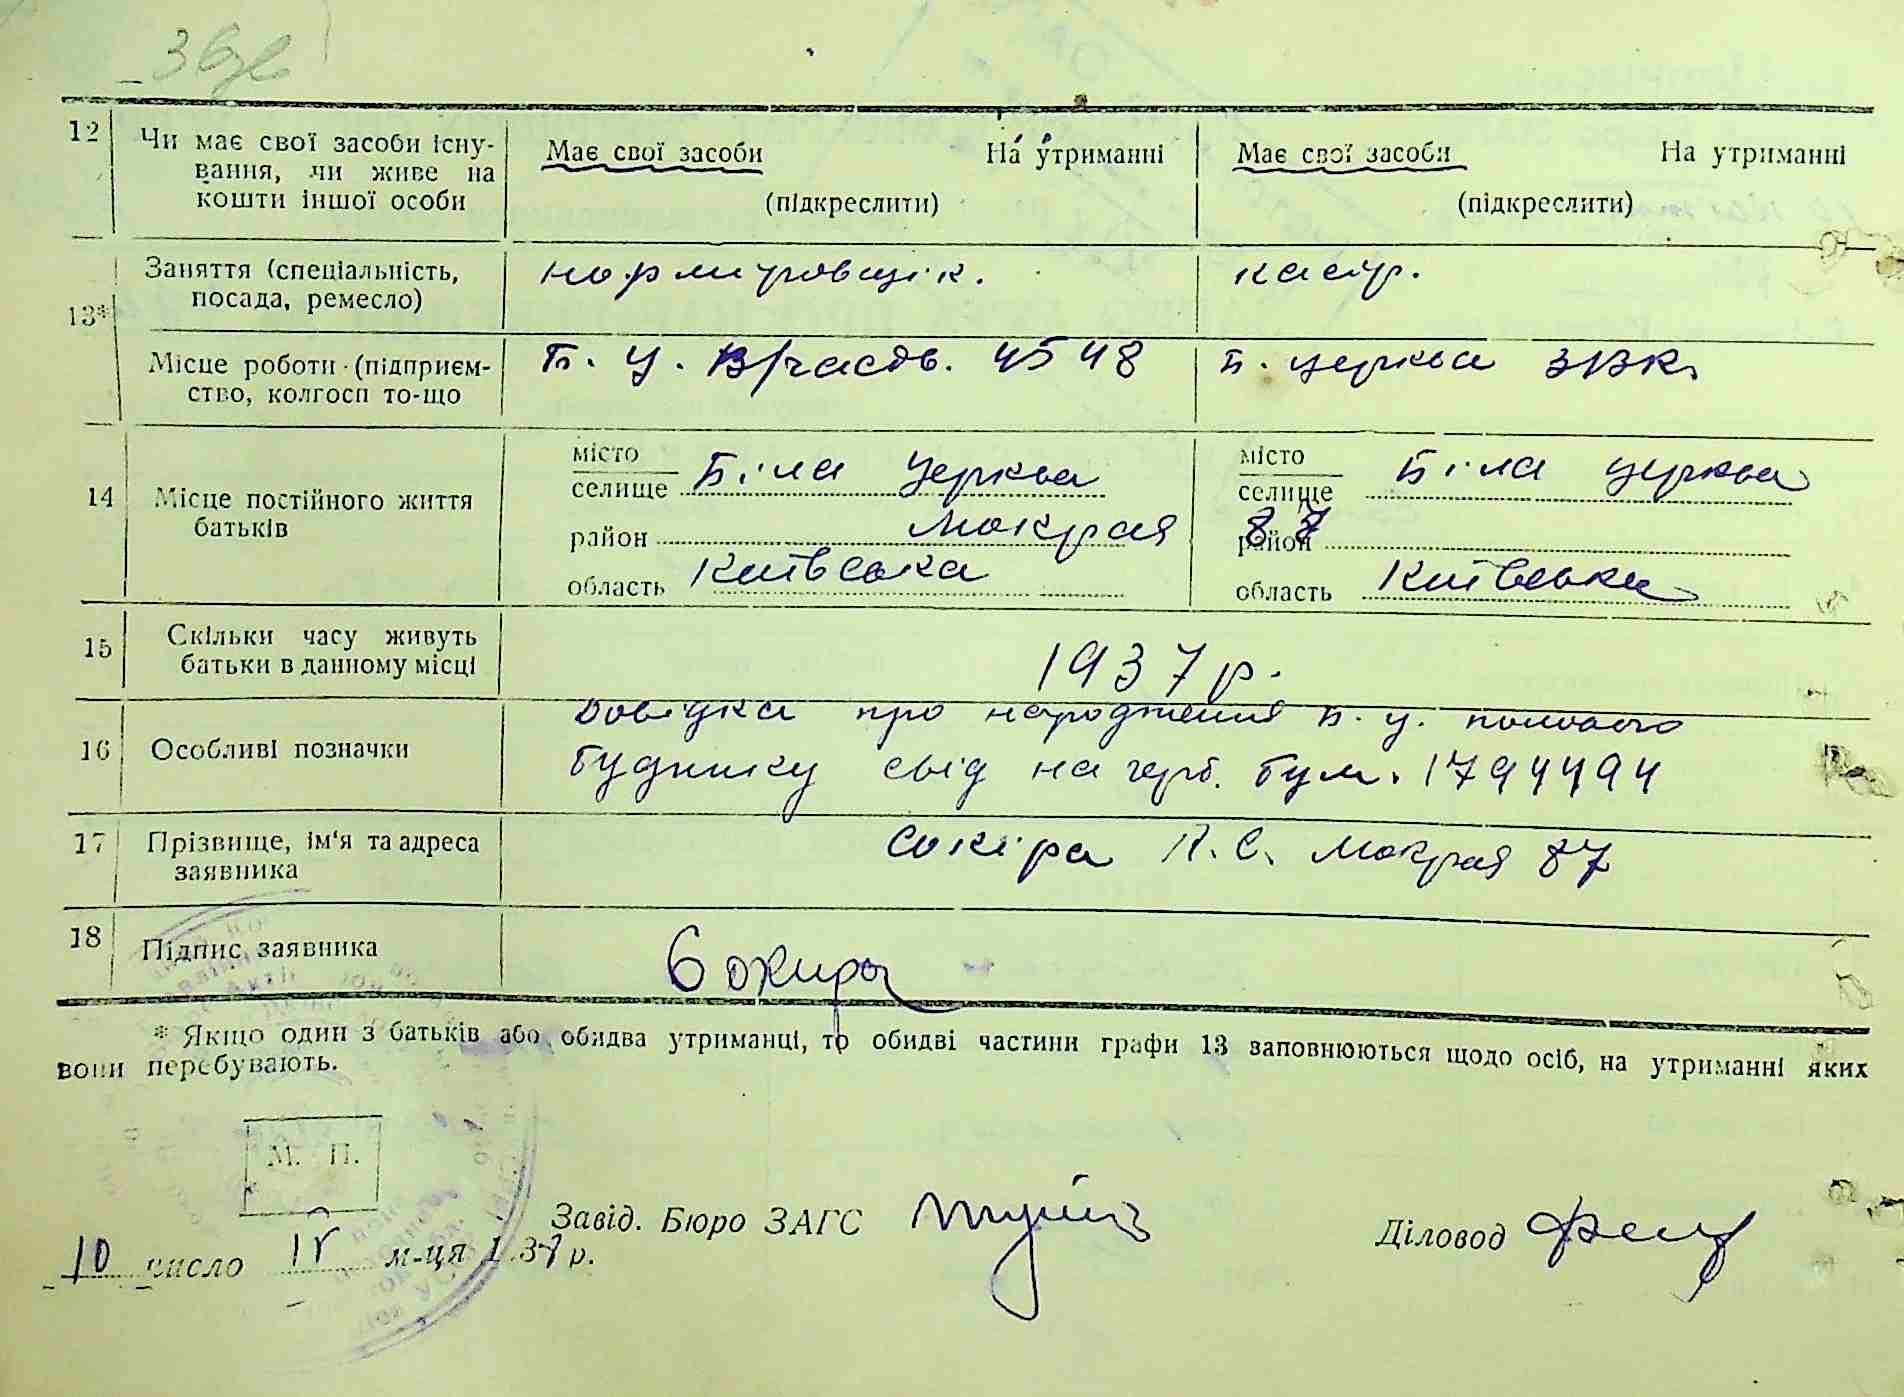 36зв
12 Чи має свої засоби існу-
вання, чи живе на
кошти іншої особи
Має свої засоби На утриманні
(підкреслити)
Має свої засоби На утриманні
(підкреслити)
13* Заняття (спеціальність,
посада, ремесло)
нормировщік.
касір.
Місце роботи (підприєм-
ство, колгосп то-що
Б. Ц. В/часть. 4548
Б. Церква ЗВК.
14 Місце постійного життя
батьків
місто
селище Біла Церква
район Мокрая
область Київська
місто
селище Біла Церква
87
район
область Київська
15 Скільки часу живуть
батьки в данному місці
1937 р.
16 Особливі позначки
Довідка про народження Б. Ц. полового
будинку свід на герб. бум. 1794494
17 Прізвище, ім'я та адреса
заявника
Сокіра П. С. Мокрая 87
18 Підпис заявника
Сокира
* Якщо один з батьків або обидва утриманці, то обидві частини графи 13 заповнюються щодо осіб, на утриманні яких
вони перебувають.
М. П.
Завід. Бюро ЗАГС
Діловод
10 число IV м-ця 1937 р.